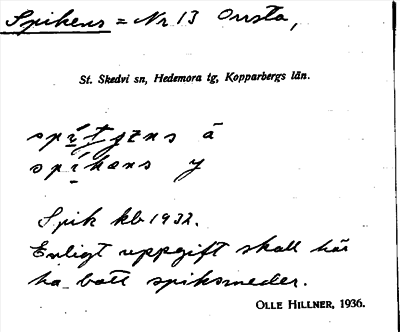 Spikens = Nr 13 Onsta,
St. Skedvi sn, Hedemora tg, Kopparbergs län.
ä
spikæns y
Spik kb 1932.
Enligt uppgift skall här
ha bott spiksmeder.
OLLE HILLNER, 1936.